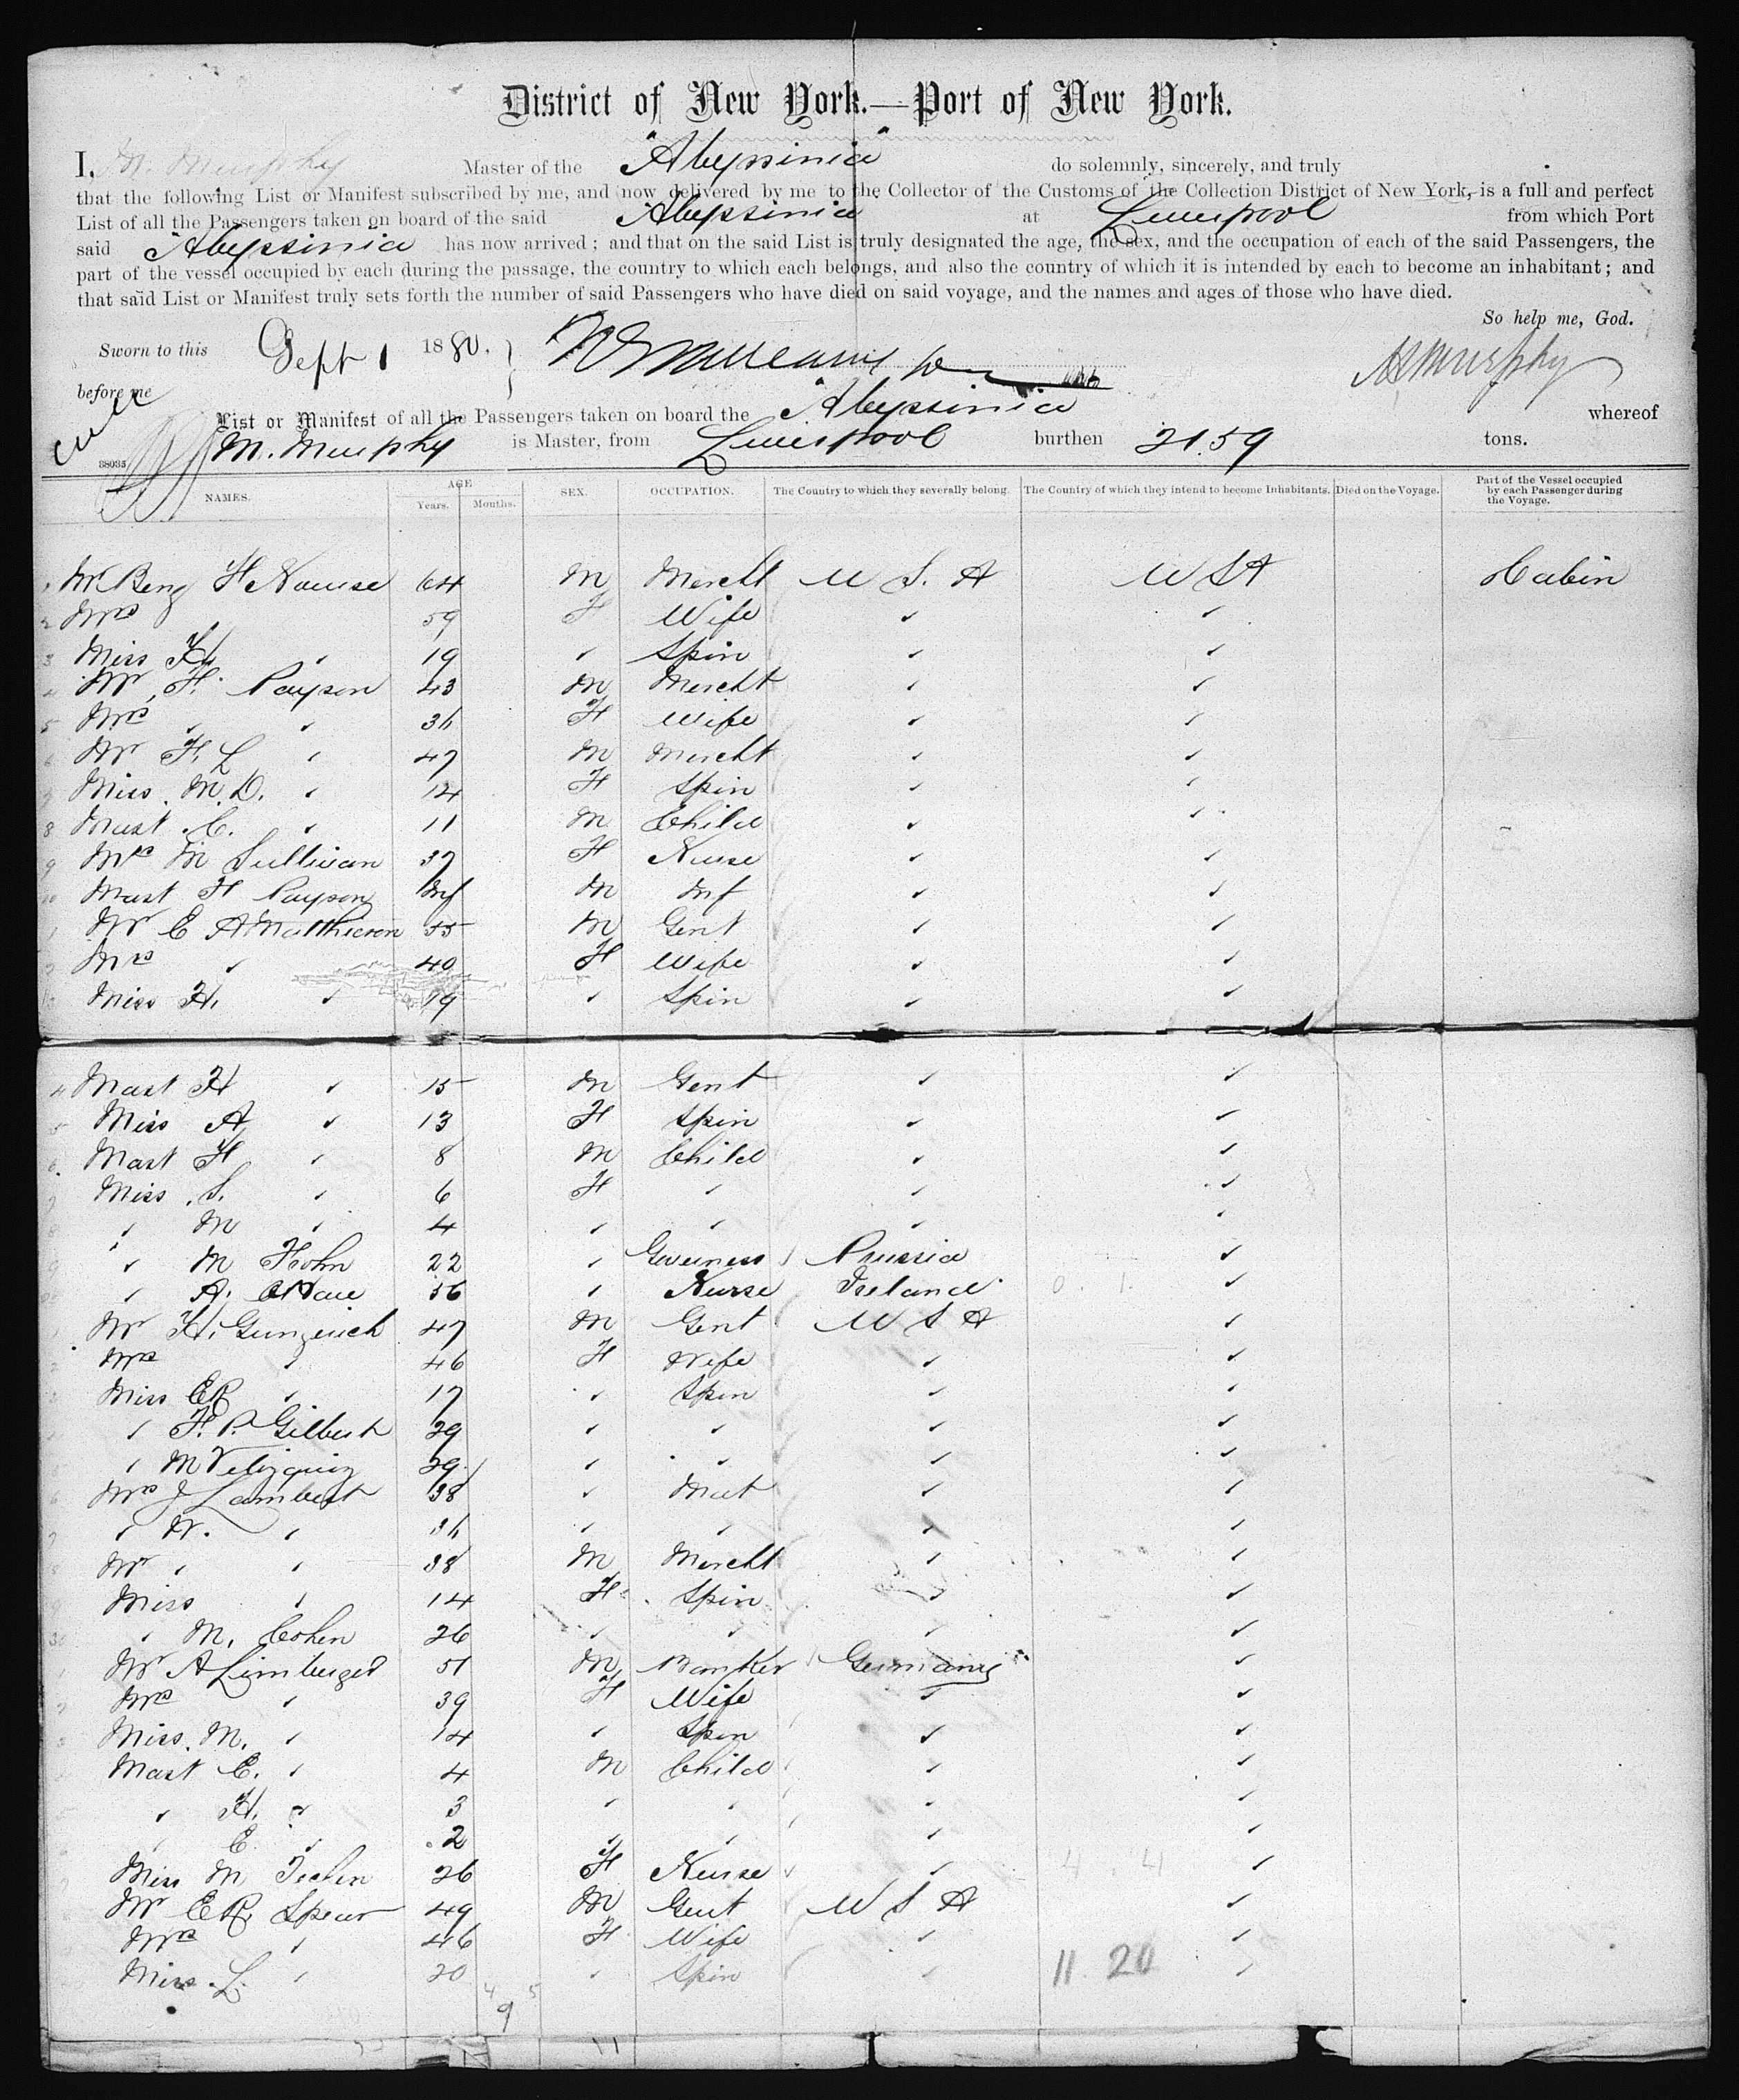 District of New York.—Port of New York.
I, M. Murphy Master of the "Abyssinia" do solemnly, sincerely, and truly
that the following List or Manifest subscribed by me, and now delivered by me to the Collector of the Customs of the Collection District of New York, is a full and perfect
List of all the Passengers taken on board of the said Abyssinia at Liverpool from which Port
said Abyssinia has now arrived; and that on the said List is truly designated the age, the sex, and the occupation of each of the said Passengers, the
part of the vessel occupied by each during the passage, the country to which each belongs, and also the country of which it is intended by each to become an inhabitant; and
that said List or Manifest truly sets forth the number of said Passengers who have died on said voyage, and the names and ages of those who have died.
So help me, God.
Sworn to this Sept 1 1880. M Murphy
before me
List or Manifest of all the Passengers taken on board the Abyssinia whereof
M. Murphy is Master, from Liverpool burthen 2159 tons.
38035
NAMES. AGE Years. Months. SEX. OCCUPATION. The Country to which they severally belong. The Country of which they intend to become Inhabitants. Died on the Voyage. Part of the Vessel occupied by each Passenger during the Voyage.
1 Mr Benj H Nourse 64 M Mercht U S. A U S A Cabin
2 Mrs 59 F Wife ✓ ✓
3 Miss H ✓ 19 ✓ Spin ✓ ✓
4 Mr H. Payson 43 M Mercht ✓ ✓
5 Mrs ✓ ✓ 36 F Wife ✓ ✓
6 Mr F. L ✓ 47 M Mercht ✓ ✓
7 Miss. M. D. ✓ 12 F Spin ✓ ✓
8 Mast. C. ✓ 11 M Child ✓ ✓
9 Mrs M Sullivan 37 F Nurse ✓ ✓
10 Mast H Payson Inf M Inf ✓ ✓
1 Mr E A Matthieson 55 M Gent ✓ ✓
2 Mrs ✓ 40 F Wife ✓ ✓
Miss H. ✓ 19 ✓ Spin ✓ ✓
4 Mast H ✓ 15 M Gent ✓ ✓
5 Miss A ✓ 13 F Spin ✓ ✓
6 Mast H ✓ 8 M Child ✓ ✓
7 Miss. S. ✓ 6 F ✓ ✓ ✓
8 ✓ M ✓ 4 ✓ ✓ ✓ ✓
9 ✓ M Hohn 22 ✓ Governess Prussia ✓
✓ A. 56 ✓ Nurse Ireland 0. 1. ✓
1 Mr H. 47 M Gent U S A ✓
2 Mrs ✓ 46 F Wife ✓ ✓
3 Miss E R ✓ 17 ✓ Spin ✓ ✓
✓ F. P. Gilbert 29 ✓ ✓ ✓ ✓
✓ M 29 ✓ ✓ ✓ ✓
6 Mrs J Lambert 38 ✓ Mat ✓ ✓
7 ✓ W. ✓ 36 ✓ ✓ ✓ ✓
8 Mr ✓ ✓ 38 M Mercht ✓ ✓
9 Miss ✓ 14 F Spin ✓ ✓
30 ✓ M. Cohen 26 ✓ ✓ ✓ ✓
1 Mr A Limburger 51 M Banker Germany ✓
2 Mrs ✓ 39 F Wife ✓ ✓
3 Miss. M. ✓ 14 ✓ Spin ✓ ✓
Mast E. ✓ 4 M Child ✓ ✓
✓ H. ✓ 3 ✓ ✓ ✓ ✓
✓ E ✓ 2 ✓ ✓ ✓ ✓
Miss M 26 F Nurse ✓ 4. 4 ✓
Mr E R. Spear 49 M Gent U S A ✓
Mrs ✓ 46 F Wife ✓ ✓
Miss. L. ✓ 20 ✓ Spin ✓ 11 20 ✓
4 9 5